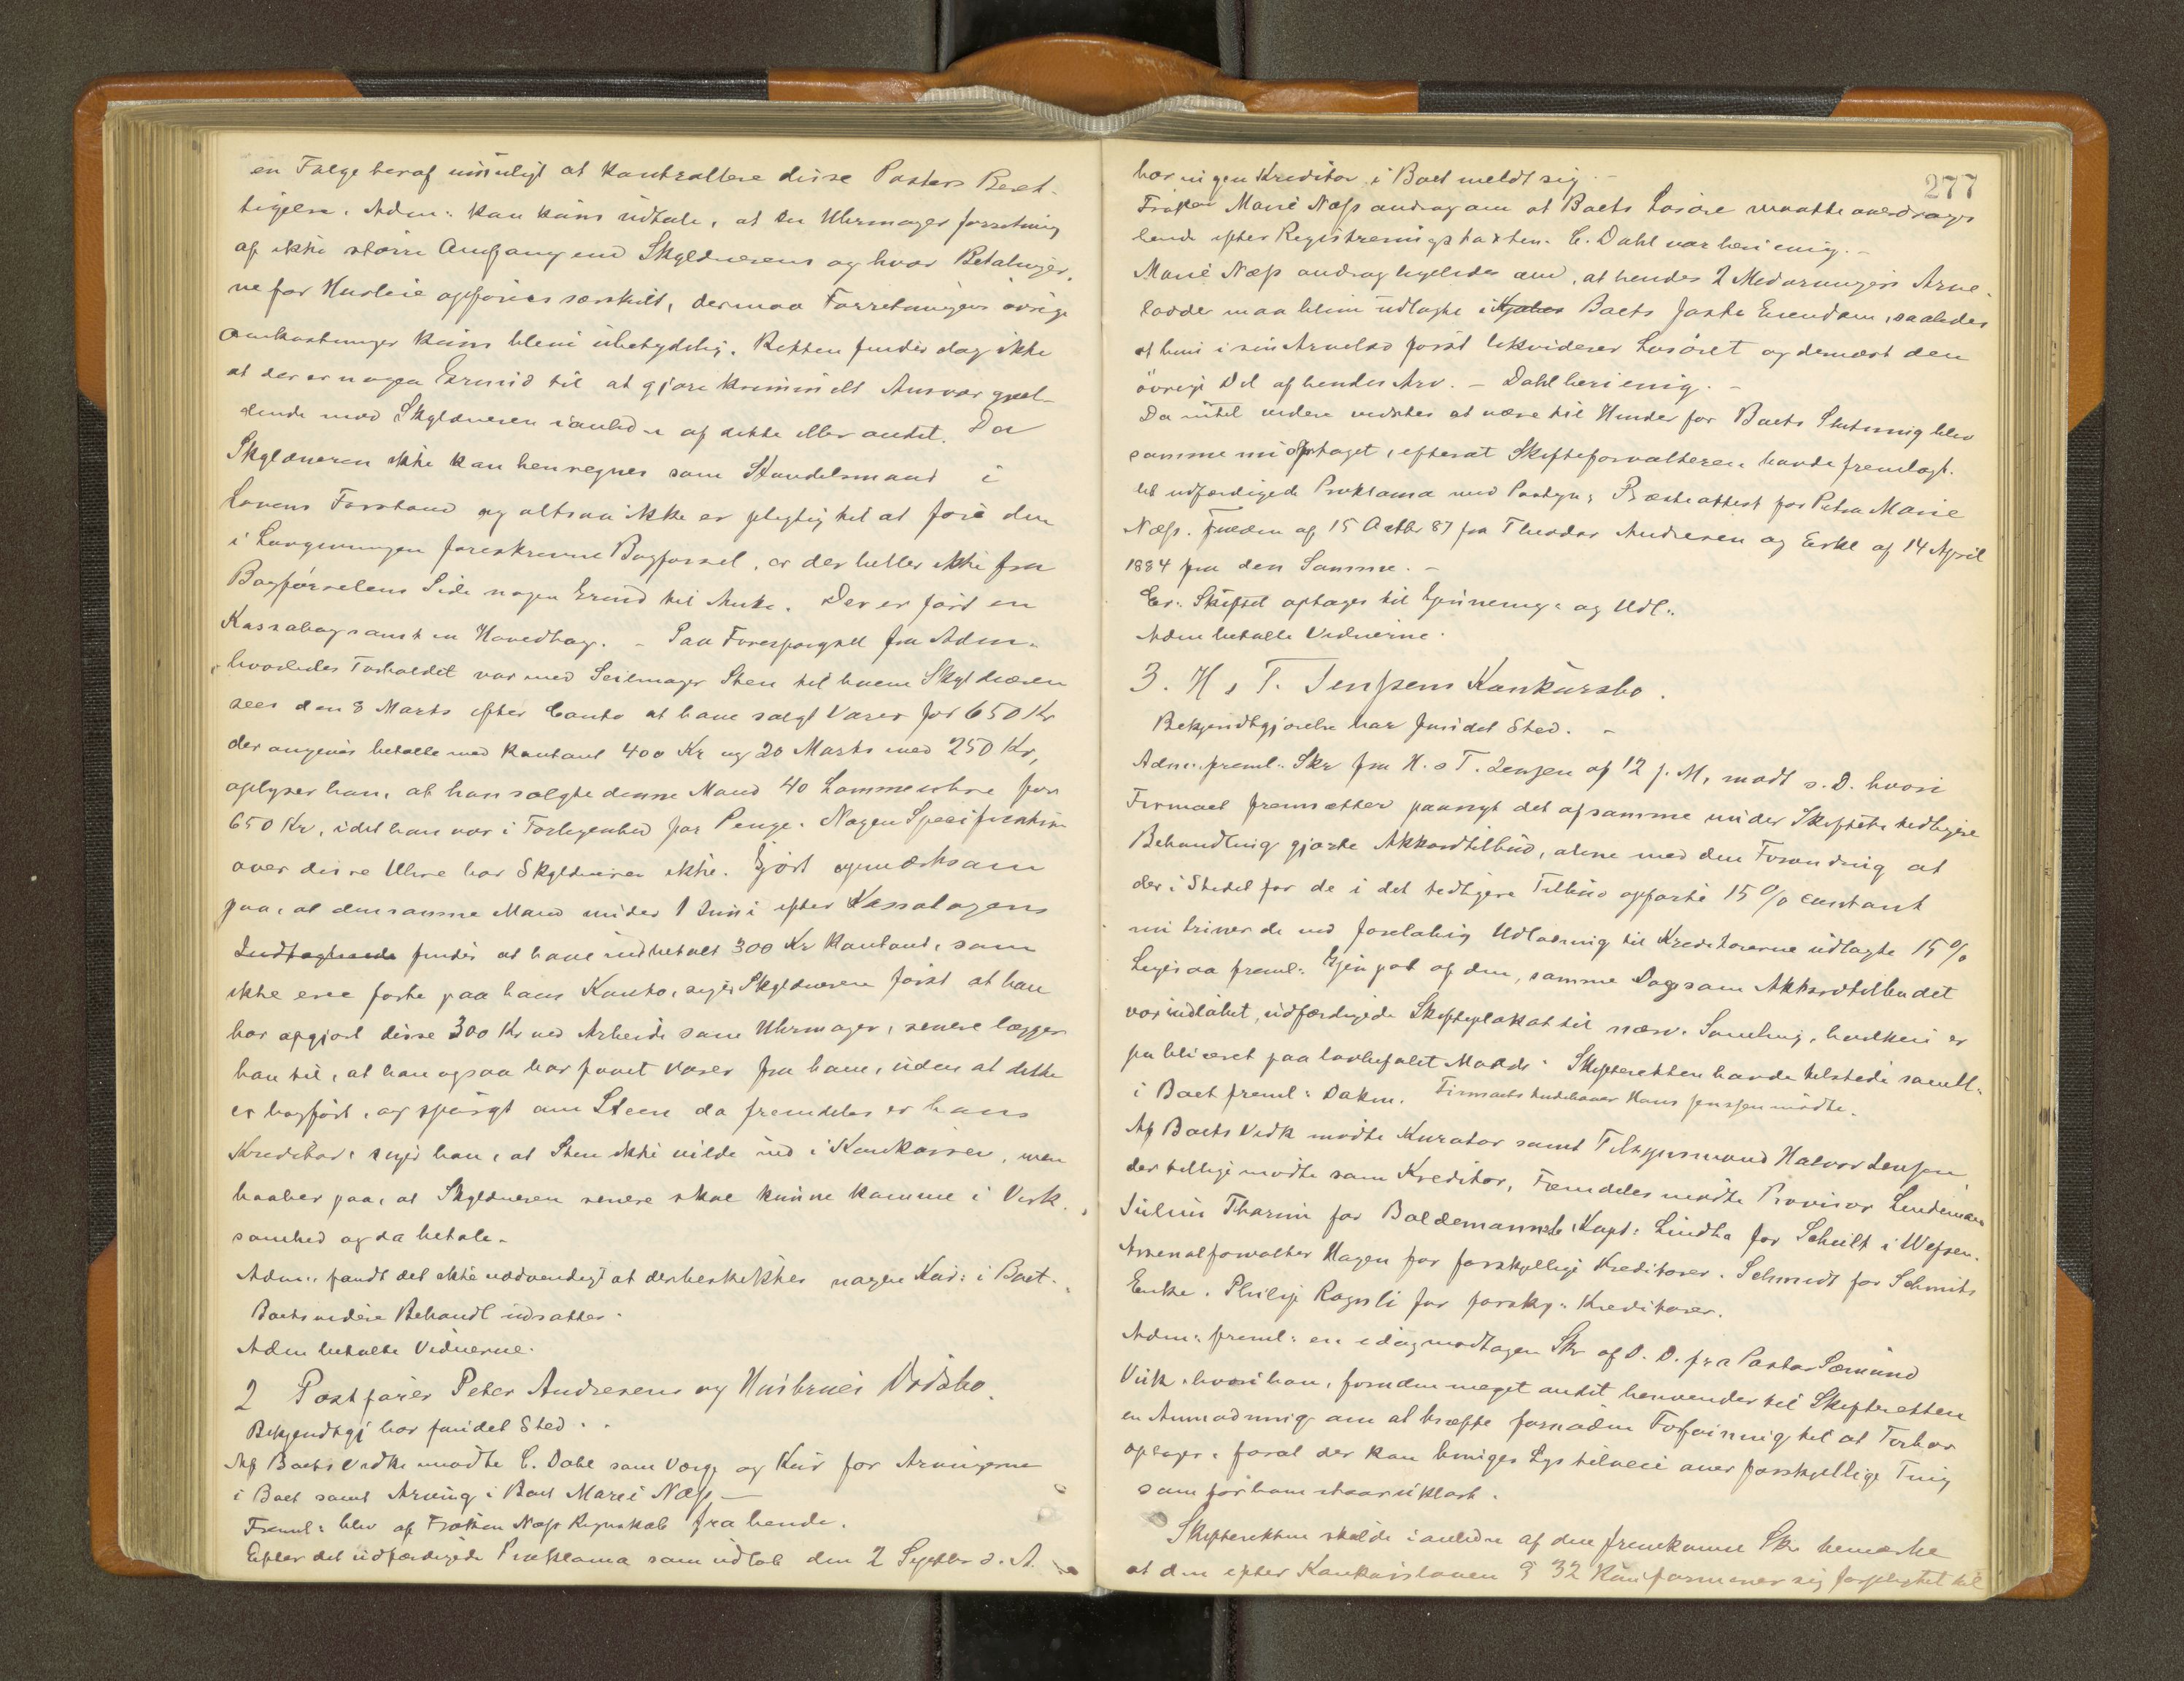 en Følge heraf umuligt at kontrollere disse Posters Beret-
tigelse. Adm: kan kuns udtale, at en Uhrmager forretning
af ikke større Omfang end Skyldnerens og hvor Betalinger,
ne for Husleie opføres særskilt, dermaa Forretningens øvrige
Omkostninger kuns blive ubetydelig. Retten finder dog ikke
at der er nogen Grund til at gjøre kriminelt Ansvar gjæl-
dende mod Skyldneren i anled - af dette eller andet. Da
Skyldneren ikke kan henregnes som Handelsmand i
Lovens Forstand og altsaa ikke er pligtig til at føre den
i Lovgivningen foreskrevne Bogførsel, er der heller ikke fra
Bogførselens Side nogen Grund til Anke. Der er ført en
Kassabog samt en Hovedbog. - Paa Forespørgsel fra Adm:
hvorledes Forholdet var med Seilmager Sten til hvem Skyldneren
sees den 8 Marts efter Conto at have solgt Varer for 650 Kr
der angives betalte med Kontant 400 Kr og 20 Marts med 250 Kr,
oplyser han, at han solgte denne Mand 40 Lommeuhre for
650 Kr, idet han var i Forlegenhed for Penge. Nogen Specifikation
over disse Uhre har Skyldneren ikke. Gjort opmærksom
paa, at den samme Mand under 1 Juni efter Kassabogens
Indtægtsside findes at have indbetalt 300 Kr Kontant, som
ikke ere førte paa hans Konto, siger Skyldneren først at han
har opgjort disse 300 Kr ved Arbeide som Uhrmager, senere lægger
han til, at han ogsaa har faaet Varer fra ham, uden at dette
er bogført, og spurgt om Steen da fremdeles er hans
Kreditor, siger han, at Sten ikke vilde ind i Konkursen, men
haaber paa, at Skyldneren senere skal kunne komme i Virk.
somhed og da betale.
Adm: fandt det ikke nødvendigt at der beskikkes nogen Kur: i Boet.
Boets videre Behandl udsattes.
Adm betalte Vidnerne.
2 Postfører Peter Andresens og Hustrues Dødsbo.
Bekjendtgj har fundet Sted.
Af Boets Vedk mødte C. Dahl som Værge og Kur for Arvingerne
i Boet samt Arving i Boet Marie Næss -
Freml: blev af Frøken Næss Regnskab fra hende.
Efter det udfærdigede Proklama som udløb den 2 Septbr d. A.
277
har ingen Kreditor i Boet meldt sig -
Frøken Marie Næss androg om at Boets Løsøre maatte overdrages
hende efter Registreringstaxten. C. Dahl var heri enig. -
Marie Næss androg ligeledes om, at hendes 2 Medarvingers Arve-
lodder maa blive udlagte i Boets faste Eiendom, saaledes
at hun i sin Arvelod først likviderer Løsøret og dernæst den
øvrige Del af hendes Arv. - Dahl heri enig. -
Da intet videre vidstes at være til Hinder for Boets Slutning blev
samme nu optaget, efterat Skifteforvalteren havde fremlagt.
det udfærdigede Proklama med Paategn; Præsteattest for Petra Marie
Næss. Fuldm af 15 Octbr 87 fra Theodor Andresen og Erkl af 14 April
1884 fra den Samme. -
Er: Skiftet optages til Gjennemg: og Udl:
Adm betalte Vidnerne.
3. H. & T. Jenssens Konkursbo.
Bekjendtgjørelse har fundet Sted. -
Adm: freml: Skr fra H. & T. Jenssen af 12 f. M., modt s. D. hvori
Firmaet fremsætter paanyt det af samme under Skiftets tidligere
Behandling gjorte Akkordtilbud, alene med den Forandring at
der i Stedet for de i det tidligere Tilbud opførte 15 % contant
nu trives de ved foreløbig Udlodning til Kreditorerne udlagte 15 %
Ligesaa freml: Gjenpart af den, samme Dag som Akkordtilbudet
var indløbet, udfærdigede Skifteplakat til nærv. Samling, hvilken er
publiceret paa lovbefalet Maade. Skifteretten havde tilstede samtl:
i Boet freml: Dokm. Firmaets Indehaver Hans Jenssen mødte.
Af Boets Vedk mødte Kurator samt Tilsynsmand Halvor Jenssen,
der tillige mødte som Kreditor, Fremdeles mødte Provisor Lindeman
Julius Tharum for Boldemann, Kapt: Lindth for Schult i Wefsen.
Arsenalforvalter Hagen for forskjellige Kreditorer. Schmidt for Schmidts
Enke. Philip Rognli for forskj: Kreditorer.
Adm: freml: en idag modtagen Skr af D. D. fra Pastor Sæmund
Viik, hvori han, foruden meget andet henvender til Skifteretten
en Anmodning om at træffe fornøden Forføining til at Forhør
optages, forat der kan bringes Lys tilveie over forskjellige Ting
som for ham staar uklart.
Skifteretten skulde i anledn af den fremkomne Skr bemærke
at den efter Konkursloven § 32 kun formener sig forpligtet til